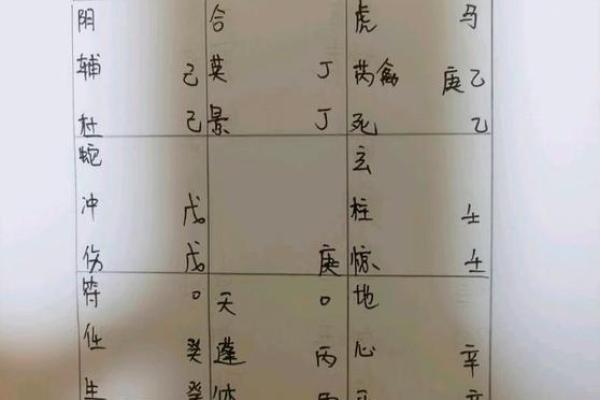 阴 合 虎 马
辅 己 英 丁 芮禽 庚乙
杜 己 景 丁 死 乙
蛇 玄
冲 戊 柱 壬
伤 戊 庚 惊 壬
符 ○ 天 ○ 地
任 癸 蓬 丙 心 辛
生 癸 休